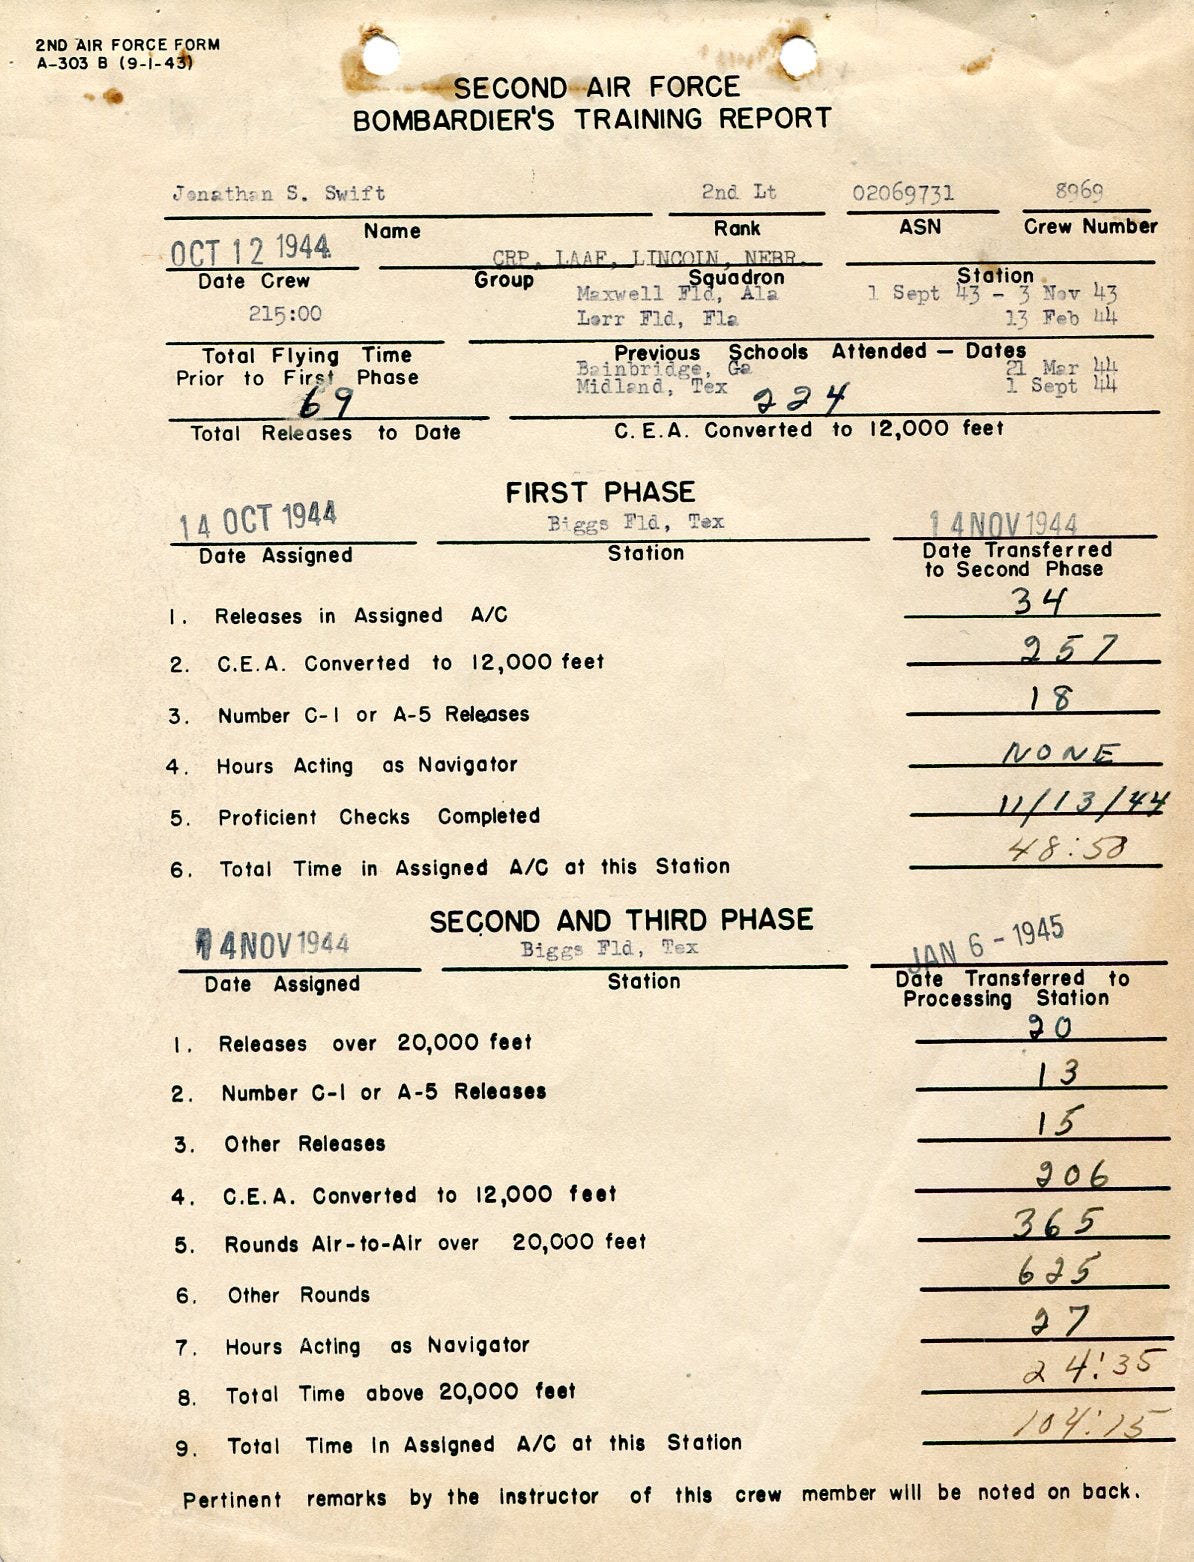 2ND AIR FORCE FORM
A-303 B (9-1-43)
SECOND AIR FORCE
BOMBARDIER'S TRAINING REPORT
Jonathan S. Swift 2nd Lt 02069731 8969
Name Rank ASN Crew Number
OCT 12 1944 CRP, LAAF, LINCOLN, NEBR.
Date Crew Group Squadron Station
Maxwell Fld, Ala 1 Sept 43 - 3 Nov 43
215:00 Lorr Fld, Fla 13 Feb 44
Total Flying Time Previous Schools Attended — Dates
Prior to First Phase Bainbridge, Ga 21 Mar 44
Midland, Tex 1 Sept 44
69 224
Total Releases to Date C.E.A. Converted to 12,000 feet
FIRST PHASE
14 OCT 1944 Biggs Fld, Tex 14 NOV 1944
Date Assigned Station Date Transferred
to Second Phase
1. Releases in Assigned A/C 34
2. C.E.A. Converted to 12,000 feet 257
3. Number C-1 or A-5 Releases 18
4. Hours Acting as Navigator NONE
5. Proficient Checks Completed 11/13/44
6. Total Time in Assigned A/C at this Station 48:50
SECOND AND THIRD PHASE
14 NOV 1944 Biggs Fld, Tex JAN 6 - 1945
Date Assigned Station Date Transferred to
Processing Station
1. Releases over 20,000 feet 20
2. Number C-1 or A-5 Releases 13
3. Other Releases 15
4. C.E.A. Converted to 12,000 feet 206
5. Rounds Air-to-Air over 20,000 feet 365
6. Other Rounds 625
7. Hours Acting as Navigator 27
8. Total Time above 20,000 feet 24:35
9. Total Time In Assigned A/C at this Station 104:15
Pertinent remarks by the instructor of this crew member will be noted on back.